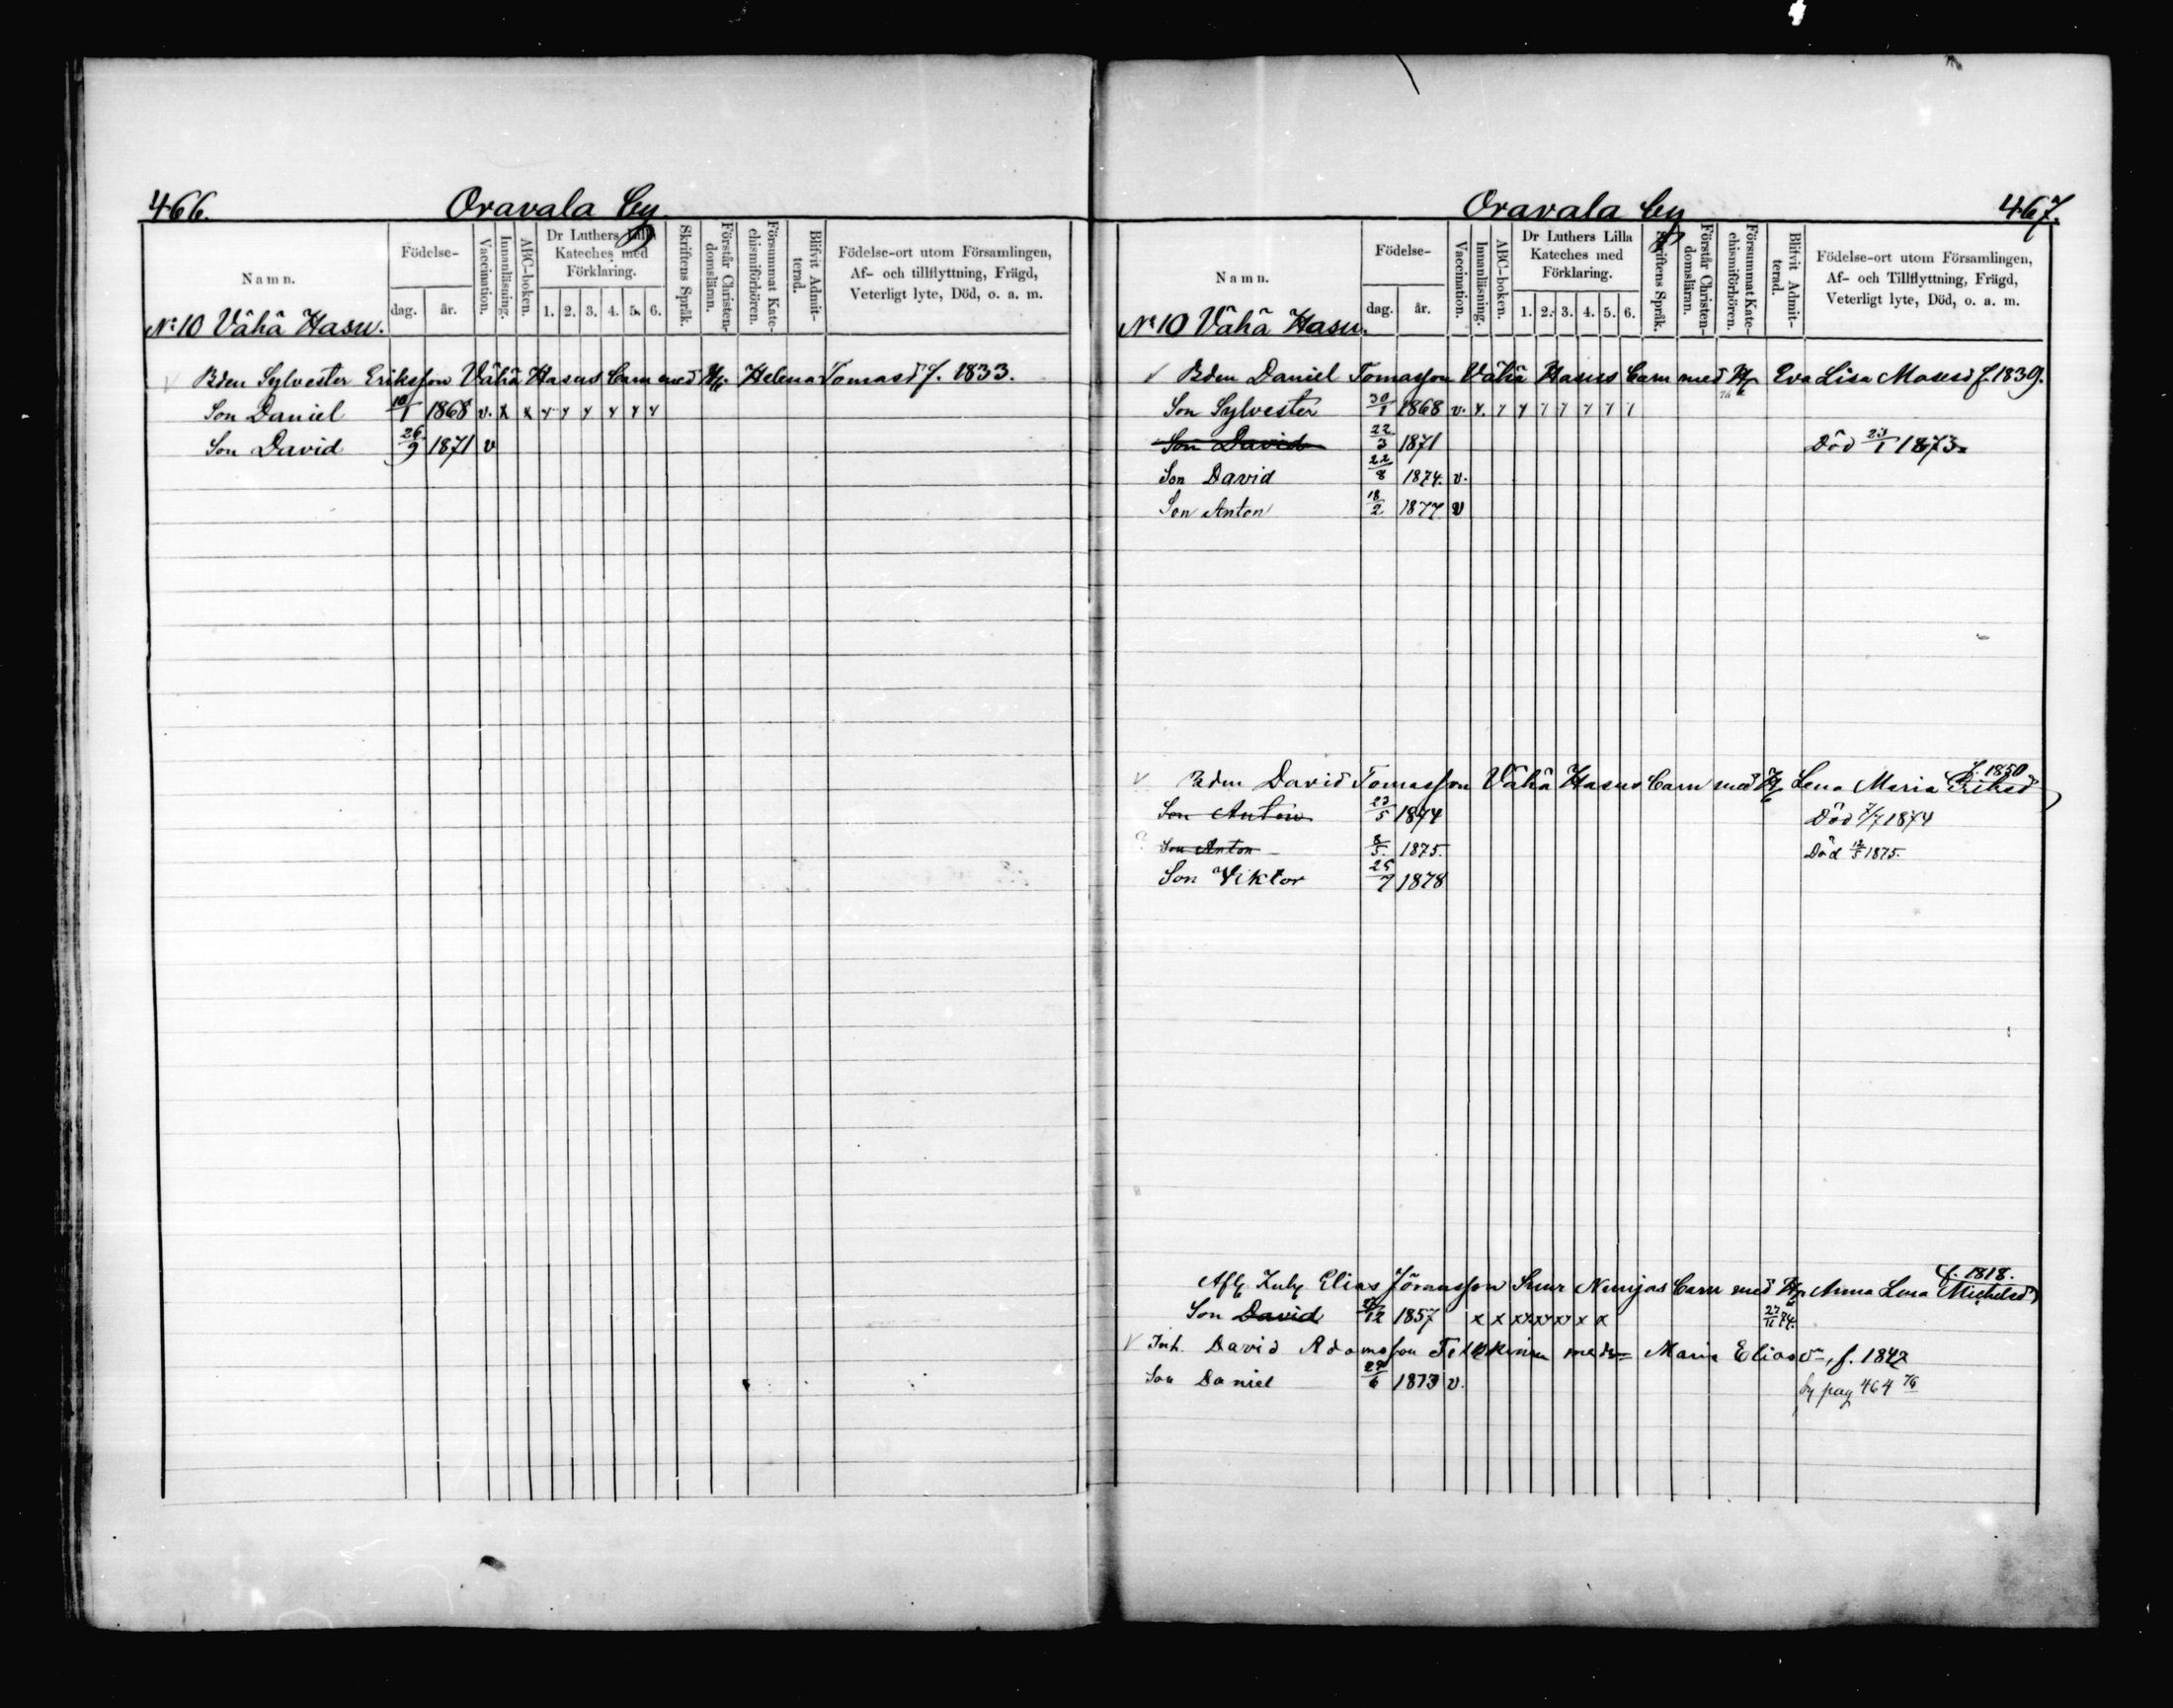 466. Oravala by
Namn. Födelse- dag. år. Vaccination. Innanläsning. ABC-boken. Dr Luthers Lilla Kateches med Förklaring. 1. 2. 3. 4. 5. 6. Skriftens Språk. Förstår Christen-domsläran. Försummat Kate-chismiförhören. Blifvit Admit-terad. Födelse-ort utom Församlingen, Af- och tillflyttning, Frägd, Veterligt lyte, Död, o. a. m.
No 10 Vähä Hasu.
v Bden Sylvester Eriksson Vähä Hasus Barn med Hu. Helena Tomasd f. 1833.
Son Daniel 10/1 1868 v. x x
Son David 26/9 1871 v
Oravala by 467.
Namn. Födelse- dag. år. Vaccination. Innanläsning. ABC-boken. Dr Luthers Lilla Kateches med Förklaring. 1. 2. 3. 4. 5. 6. Skriftens Språk. Förstår Christen-domsläran. Försummat Kate-chismiförhören. Blifvit Admit-terad. Födelse-ort utom Församlingen, Af- och Tillflyttning, Frägd, Veterligt lyte, Död, o. a. m.
No 10 Vähä Hasu.
v Bden Daniel Tomasson Vähä Hasus Barn med Hu Eva Lisa Mosesd f. 1839.
Son Sylvester 30/1 1868 v.
Son David 22/3 1871 Död 23/1 1873
Son David 22/8 1874. v.
Son Anton 18/2 1877 v
f. 1850
v Bden David Tomasson Vähä Hasus Barn med Hu Lena Maria Eriksd
Son Anton 23/5 1874 Död 7/7 1874
Son Anton 8/5. 1875. Död 12/5 1875.
Son Viktor 25/7 1878
f. 1818.
Elias Jöransson Suur Nunjas Barn med Hu Anna Lena Michelsd
Son David 1857 x x x x x x x x
v Inh. David Adamsson med Maria Eliasd, f. 1847
Son Daniel 1873 v. by pag 464